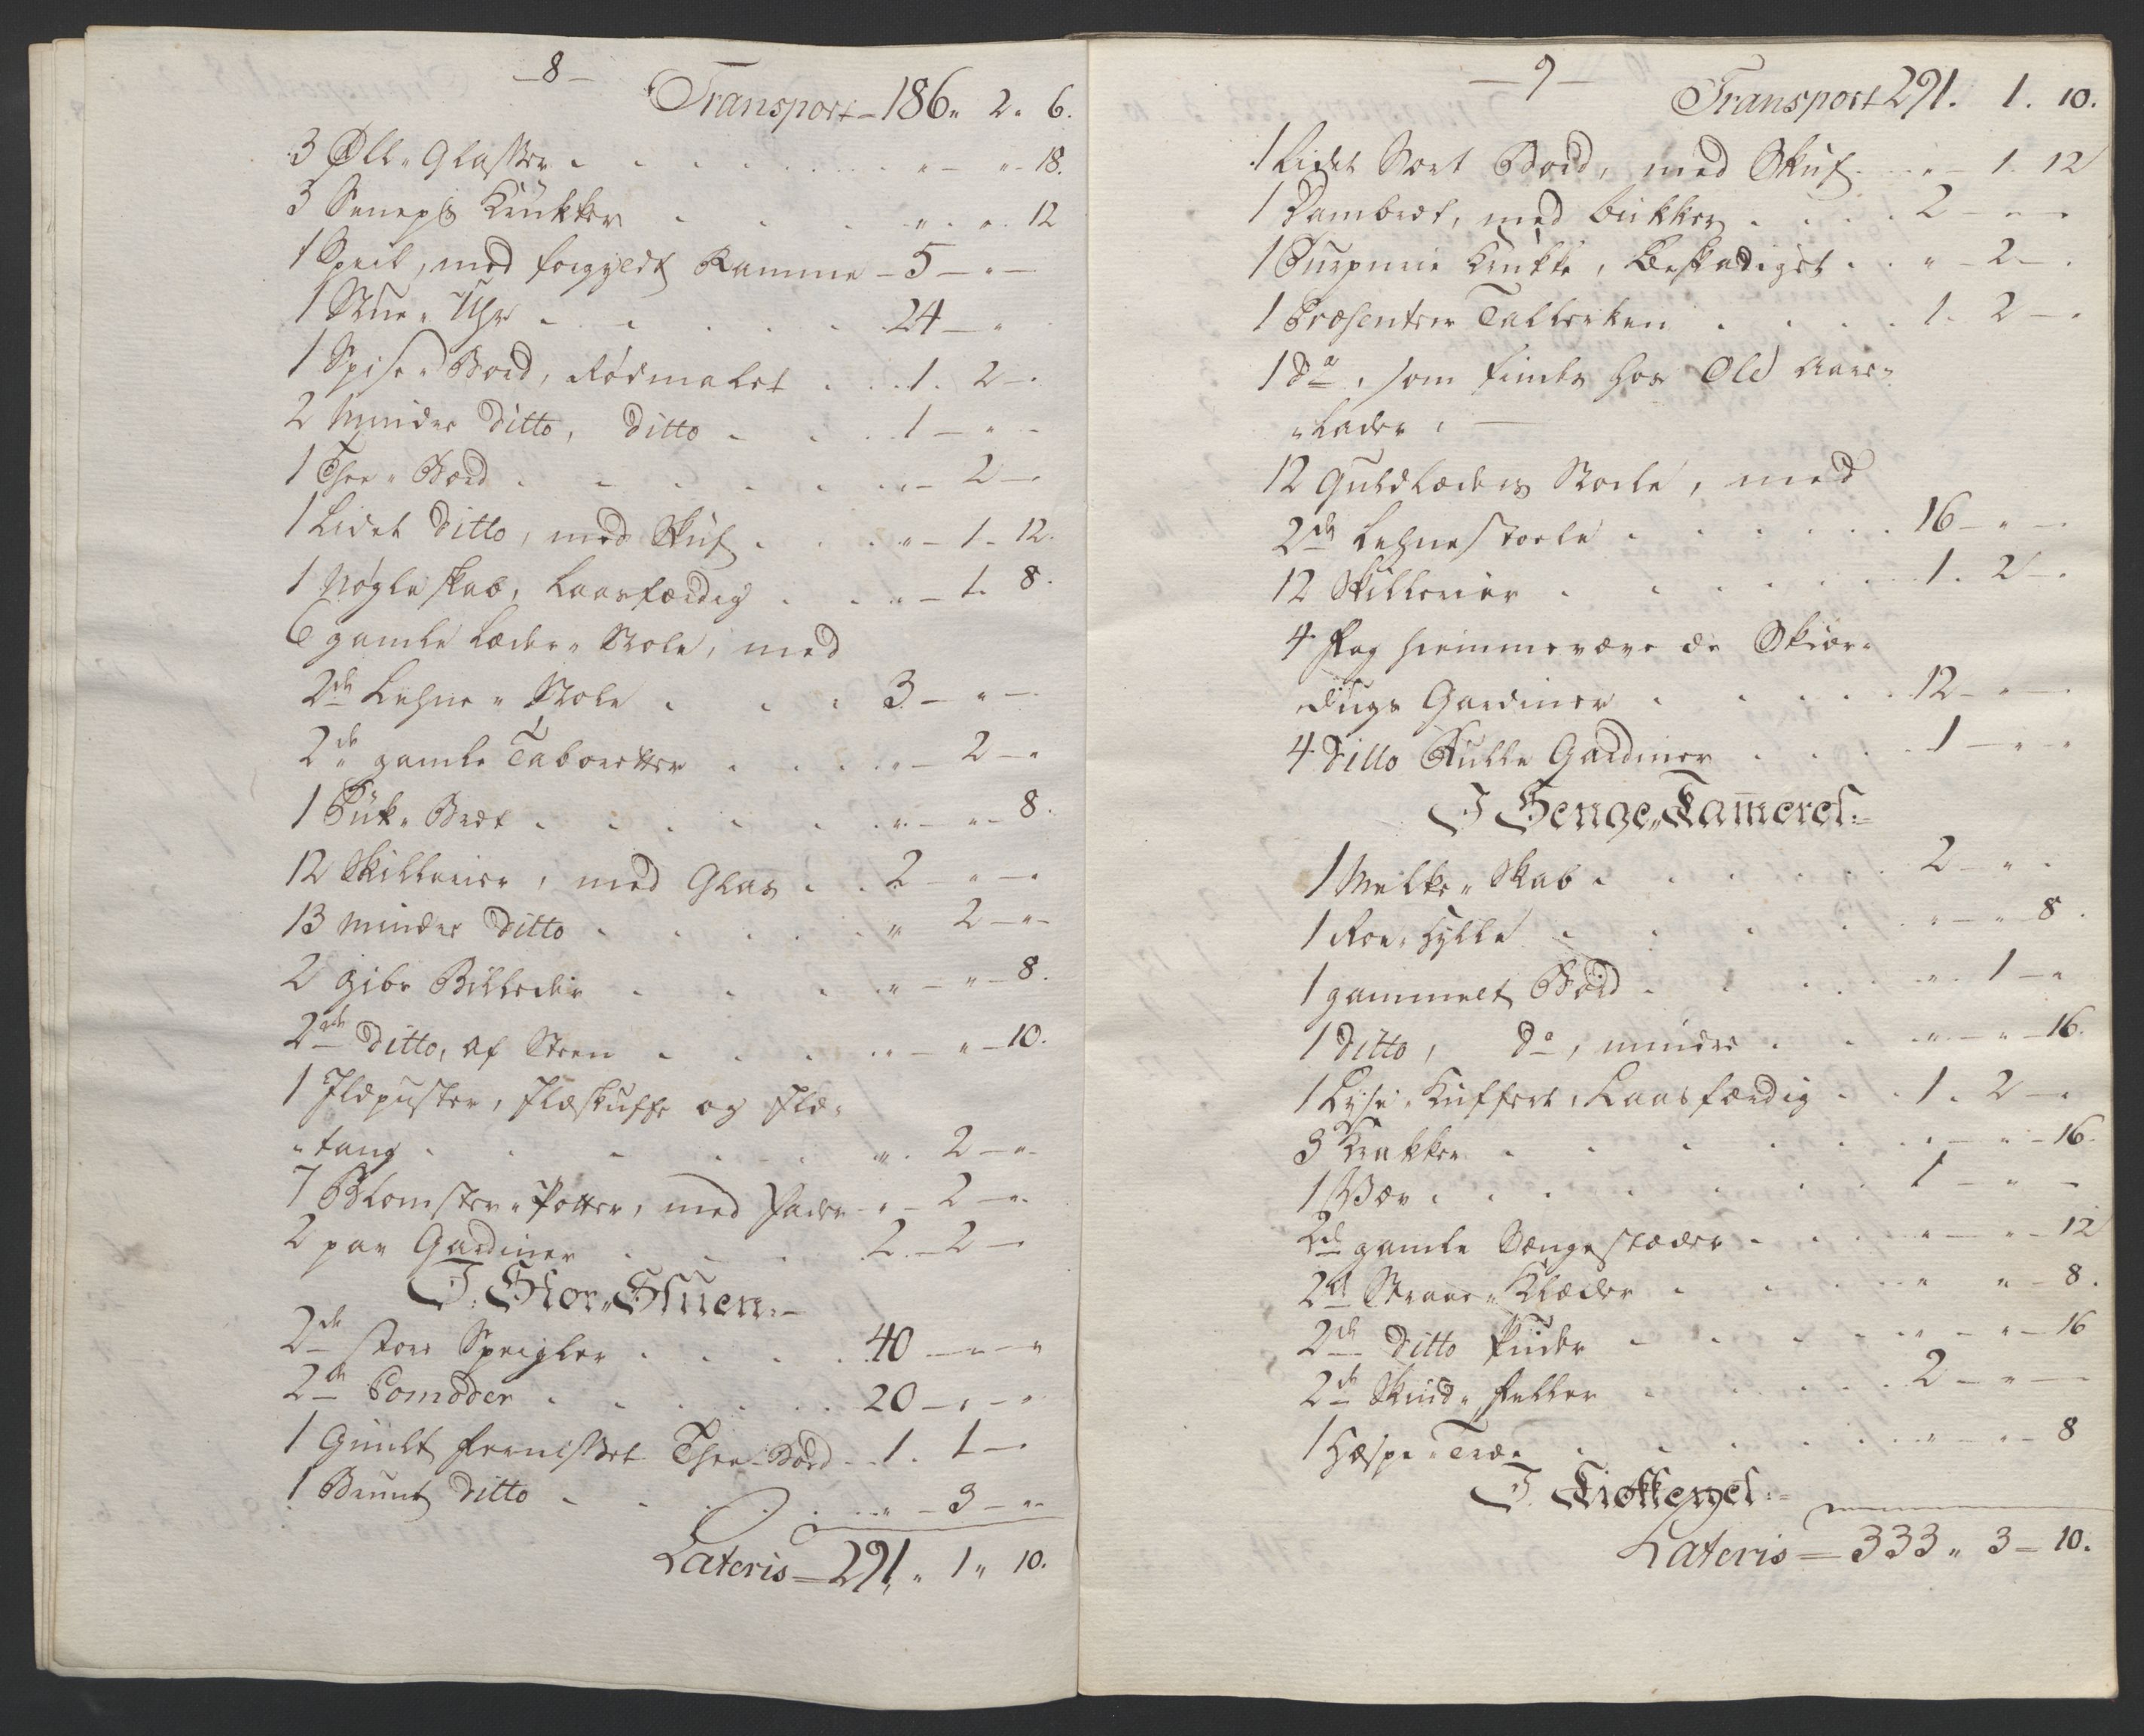 -8-
Transport - 186 " 2 " 6.
3 Øll " Glasser . . . " - " - 18.
3 Seneps Krukker . . . " . " . 12
1 Speil, med forgyldt Ramme - 5 - " -
1 Stue " Uhr . . . 24 - "
1 Spise " Bord, Rødmalet . . . 1 . 2 - .
2 Mindre Ditto, Ditto . . . 1 - " -
1 Thee " Bord . . . " - 2 - .
1 Lidet Ditto, med Skuf . . . " - 1 - 12.
1 Nøgleskab, Laasfærdig . . . " - 1. 8.
6 gamle Læder " Stole, med
2de Lehne " Stole . . . 3 - " -
2de gamle Tabouretter . . . " - 2 - "
1 Bræt . . . " - " - 8.
12 Skillerier, med Glas . . 2 - " - "
13 Mindre Ditto . . . " 2 - " -
2 gibs Billeder . . . " - " - 8.
2de Ditto, af Steen . . . " - " - 10.
1 Ildpuster, Ildskuffe og Ild-
" tang . . . " . 2 - " -
7 Blomster " Potter, med Fader - " - 2 - " .
2 par Gardiner . . . 2 . - 2 - "
I. Stor " Stuen : -
2de store Speigler . . . 40 - " - "
2de Comoder . . . 20 - " - "
1 Guult fernisset Thee - Bord - - 1 . 1 - "
1 Bruunt Ditto . . . " - 3 - " -
Lateris = 291 " 1 " 10.
- 9 -
Transport 291. 1. 10.
1 Lidet Sort Bord, med Skuf . . " - 1. 12
1 Dambræt, med brikker . . . 2 - " - "
1 Krukke, Beskadiget . . " - 2 - .
1 Præsenteer Tallerken . . . 1 . 2 - .
1 do, som findes hos Old
" , -
12 Guldlæders Stoele, med
2de Lehnestoele . . . 16 - " - .
12 Skillerier . . . 1 . 2 - .
4 Fag hiemmevævede Skiør-
" dugs Gardiner . . . 12 - " - .
4 Ditto Rulle Gardiner . . . 1 - " - "
I Senge " Kameret : -
1 Melke " Skab . . . 2 - " .
1 " Hylle . . . " - " 8 .
1 gammelt Bord . . . " . 1 - "
1 Ditto, do, mindre . . . " - " - 16.
1 Lyse " Kuffert, Laasfærdig . . 1 . 2 - "
3 Krakker . . . " - " - 16.
1 . . . 1 - " -
2de gamle Sengestæder . . . " - " - 12
2de Straae " Klæder . . . " " - 8.
2de Ditto Puder . . . " - " - 16
2de Skind " Feller . . . 2 - " -
1 Hæspe " Træe . . . " - " - 8
I. Kiøkkenet : -
Lateris = 333 " 3 - 10.